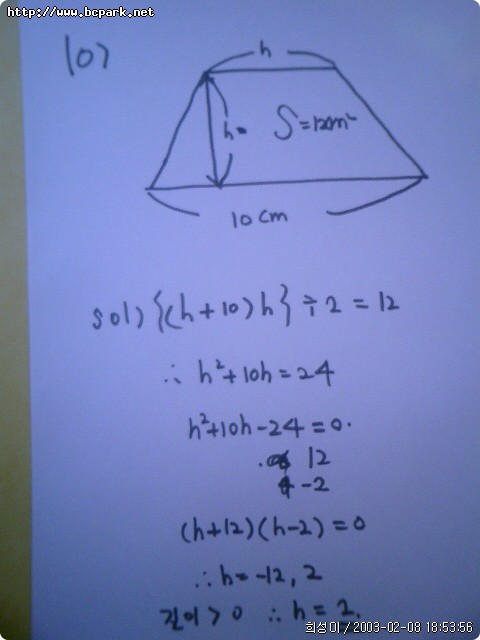 http://www.bcpark.net
10)
h
h=
S=12cm²
10cm
sol) {(h+10)h}÷2=12
∴ h²+10h=24
h²+10h-24=0.
12
-2
(h+12)(h-2)=0
∴h=-12, 2
길이>0 ∴h=2.
희성이/2003-02-08 18:53:56